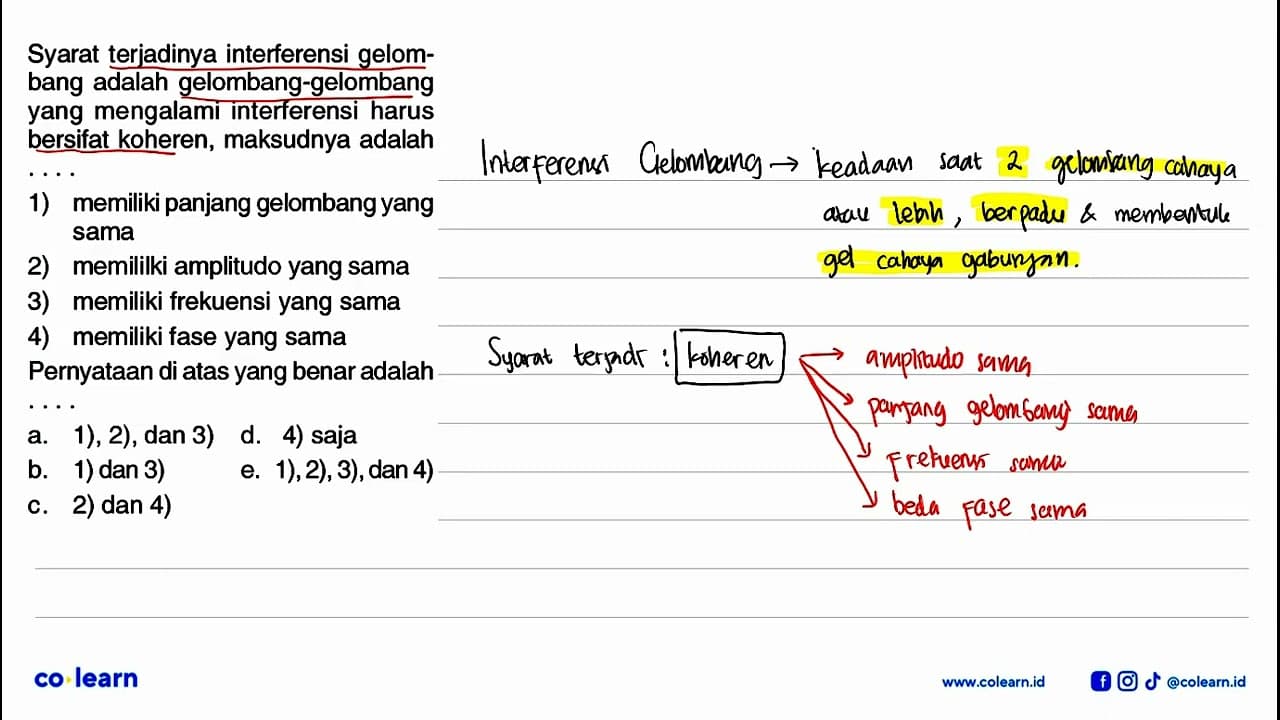 Syarat terjadinya interferensi gelom-
bang adalah gelombang-gelombang
yang mengalami interferensi harus
bersifat koheren, maksudnya adalah
. . . .
1) memiliki panjang gelombang yang
sama
2) memililki amplitudo yang sama
3) memiliki frekuensi yang sama
4) memiliki fase yang sama
Pernyataan di atas yang benar adalah
. . . .
a. 1), 2), dan 3) d. 4) saja
b. 1) dan 3) e. 1), 2), 3), dan 4)
c. 2) dan 4)
Interferensi Gelombang → keadaan saat 2 gelombang cahaya
atau lebih, berpadu & membentuk
gel cahaya gabungan.
Syarat terjadi : koheren
amplitudo sama
panjang gelombang sama
Frekuensi sama
beda fase sama
co learn
www.colearn.id
@colearn.id